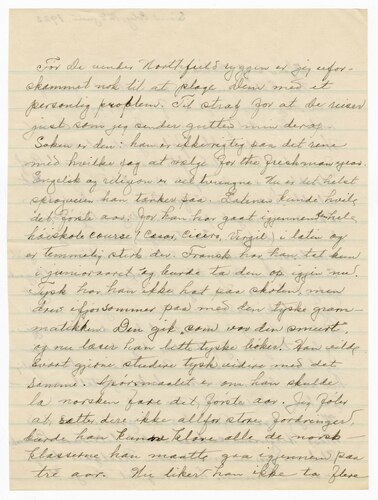 Før De vender Northfield ryggen er jeg ufor-
skammet nok til at plage Dem med et
personlig problem. Til straf for at De reiser
just som jeg sender gutten min derop.
Saken er den: han er ikke rigtig paa det rene
med hvilke fag at vælge for the freshman year.
Engelsk og religion er vel tvungne. Nu er det helst
sprogveien han tænker paa. Latinen kunde hvile
det første aar, for han har gaat igjennem the hele
høiskole course (Cæsar, Cicero, Vergil) i latin og
er temmelig sterk der. Fransk har han tat kun
i junioraaret, og burde ta den op igjen nu.
Tysk har han ikke hat paa skolen, men
drev ifjor sommer paa med den tyske gram-
matikken. Den gik som var den smurt,
og nu læser han lett tyske bøker. Han vilde
svært gjerne studere tysk videre med det
samme. Spørsmaalet er om han skulde
la norsken fare det første aar. Jeg føler
at, sætter dere ikke altfor store fordringer,
burde han kunne klare alle de norsk-
klasserne han maatte gaa igjennem paa
tre aar. Nu liker han ikke ta flere